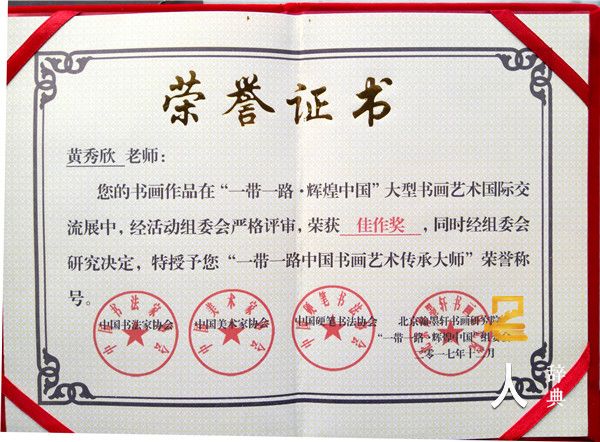 荣誉证书
黄秀欣 老师：
您的书画作品在“一带一路·辉煌中国”大型书画艺术国际交
流展中，经活动组委会严格评审，荣获 佳作奖 ，同时经组委会
研究决定，特授予您“一带一路中国书画艺术传承大师”荣誉称
号。
中国书法家协会 中国美术家协会 中国硬笔书法协会 北京翰墨轩书画研究院
“一带一路·辉煌中国”组委会
二〇一七年十二月
人 辞典